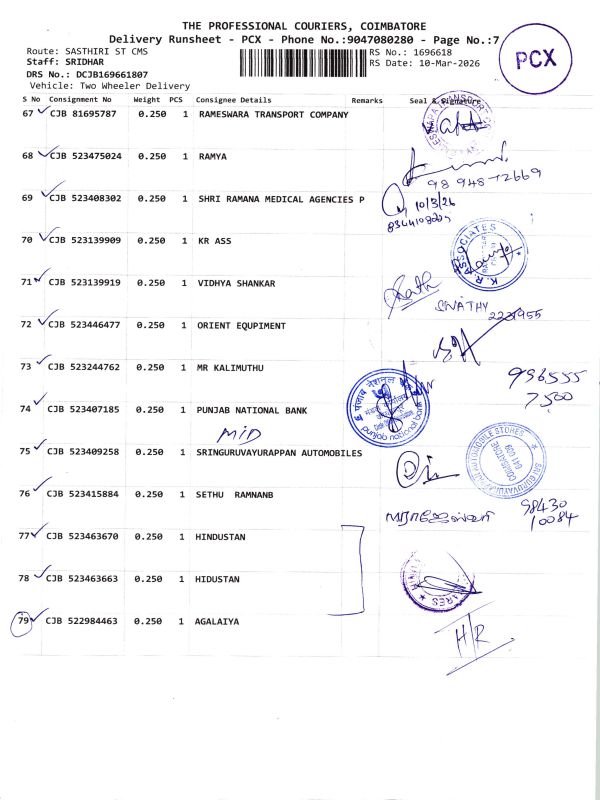 THE PROFESSIONAL COURIERS, COIMBATORE
Delivery Runsheet - PCX - Phone No.:9047080280 - Page No.:7
PCX
Route: SASTHIRI ST CMS
RS No.: 1696618
Staff: SRIDHAR
RS Date: 10-Mar-2026
DRS No.: DCJB169661807
Vehicle: Two Wheeler Delivery
S No Consignment No Weight PCS Consignee Details Remarks Seal & Signature
67 CJB 81695787 0.250 1 RAMESWARA TRANSPORT COMPANY
68 CJB 523475024 0.250 1 RAMYA
98 948-72669
69 CJB 523408302 0.250 1 SHRI RAMANA MEDICAL AGENCIES P
10/3/26
70 CJB 523139909 0.250 1 KR ASS
K.R. ASSOCIATES
71 CJB 523139919 0.250 1 VIDHYA SHANKAR
SWATHY
72 CJB 523446477 0.250 1 ORIENT EQUPIMENT
73 CJB 523244762 0.250 1 MR KALIMUTHU
996555
7500
74 CJB 523407185 0.250 1 PUNJAB NATIONAL BANK
punjab national bank
MID
75 CJB 523409258 0.250 1 SRINGURUVAYURAPPAN AUTOMOBILES
SRI GURUVAYURAPPAN AUTOMOBILE STORES
COIMBATORE
641 009
76 CJB 523415884 0.250 1 SETHU RAMNANB
98430
10084
77 CJB 523463670 0.250 1 HINDUSTAN
78 CJB 523463663 0.250 1 HIDUSTAN
79 CJB 522984463 0.250 1 AGALAIYA
H/R